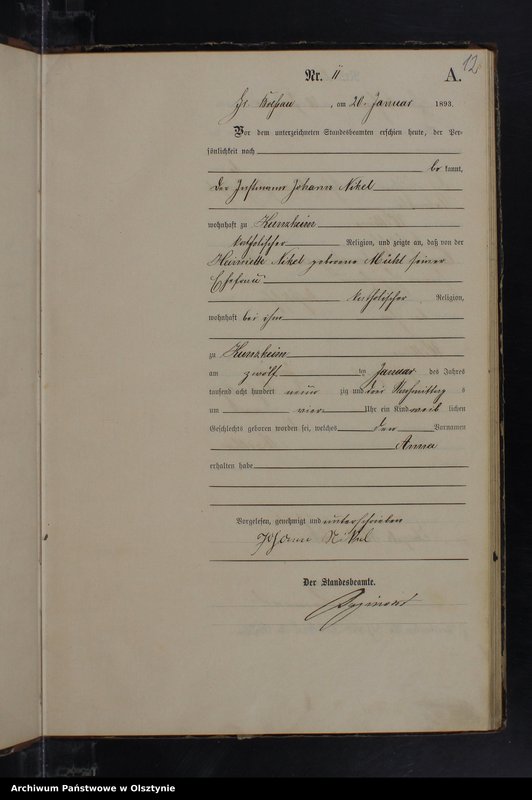 12
Nr. 11 A.
Gr. , am 20. Januar 1893.
Vor dem unterzeichneten Standesbeamten erschien heute, der Per-
sönlichkeit nach
be kannt,
der Instmann Johann Nikel
wohnhaft zu Kunzkeim
katholischer Religion, und zeigte an, daß von der
Henriette Nikel geborene Mühl seiner
Ehefrau
katholischer Religion,
wohnhaft bei ihm
zu Kunzkeim
am zwölf ten Januar des Jahres
tausend acht hundert neun zig und drei Nachmittag s
um vier Uhr ein Kind weib lichen
Geschlechts geboren worden sei, welches den Vornamen
Anna
erhalten habe
Vorgelesen, genehmigt und unterschrieben
Johann Nikel
Der Standesbeamte.
Archiwum Państwowe w Olsztynie